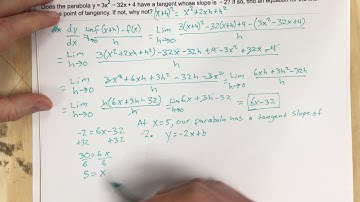 Does the parabola y = 3x² − 32x + 4 have a tangent whose slope is −2? If so, find an equation for the
the point of tangency. If not, why not? (x+h)² = x²+2xh+h²
dy/dx = Lim h→0 f(x+h)-f(x)/h = Lim h→0 3(x+h)²-32(x+h)+4-(3x²-32x+4)/h
= Lim h→0 3(x²+2xh+h²)-32x-32h+4-3x²+32x-4/h
= Lim h→0 3x²+6xh+3h²-32h-3x²/h = Lim h→0 6xh+3h²-32h/h
= Lim h→0 h(6x+3h-32)/h = Lim h→0 6x+3h-32 = 6x-32
-2=6x-32 At x=5, our parabola has a tangent slope of
+32 +32 -2. y=-2x+b
30/6=6x/6
5=x